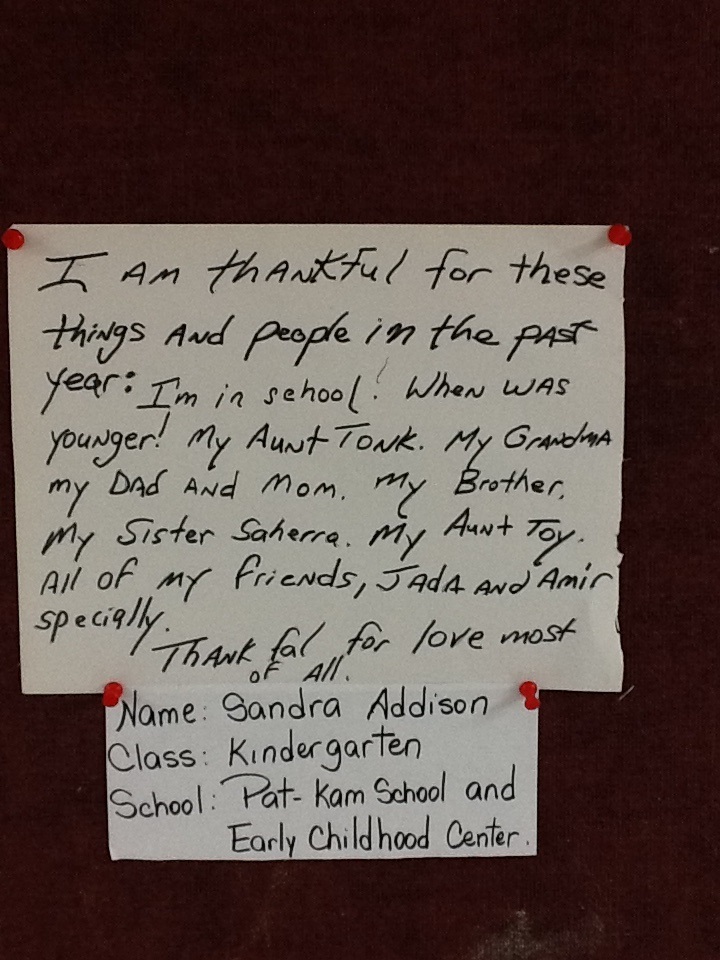 I AM thANKful for these
things AND people in the pAST
year: I'm in school! When WAS
younger! My AUNt TONK. My GrandmA
my DAD AND Mom. My Brother.
My Sister Saherra. My AUNt Toy.
All of my friends, JAdA AND Amir
specially.
ThANk ful for love most
of All.
Name: Sandra Addison
Class: Kindergarten
School: Pat-Kam School and
Early Childhood Center.